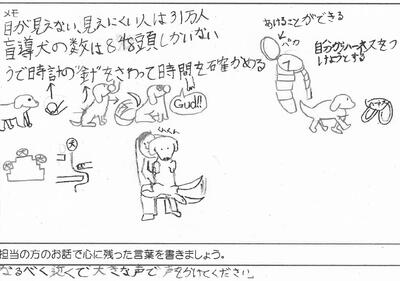 メモ
目が見えない、見えにくい人は31万人
盲導犬の数は848頭しかいない
うで時計の"針"をさわって時間を確かめる
あけることができる
パカ
自分からハーネスをつ
けようとする
Gud!!
ハーネス
犬
くんくん
担当の方のお話で心に残った言葉を書きましょう。
なるべく近くで大きな声で声をかけてください。